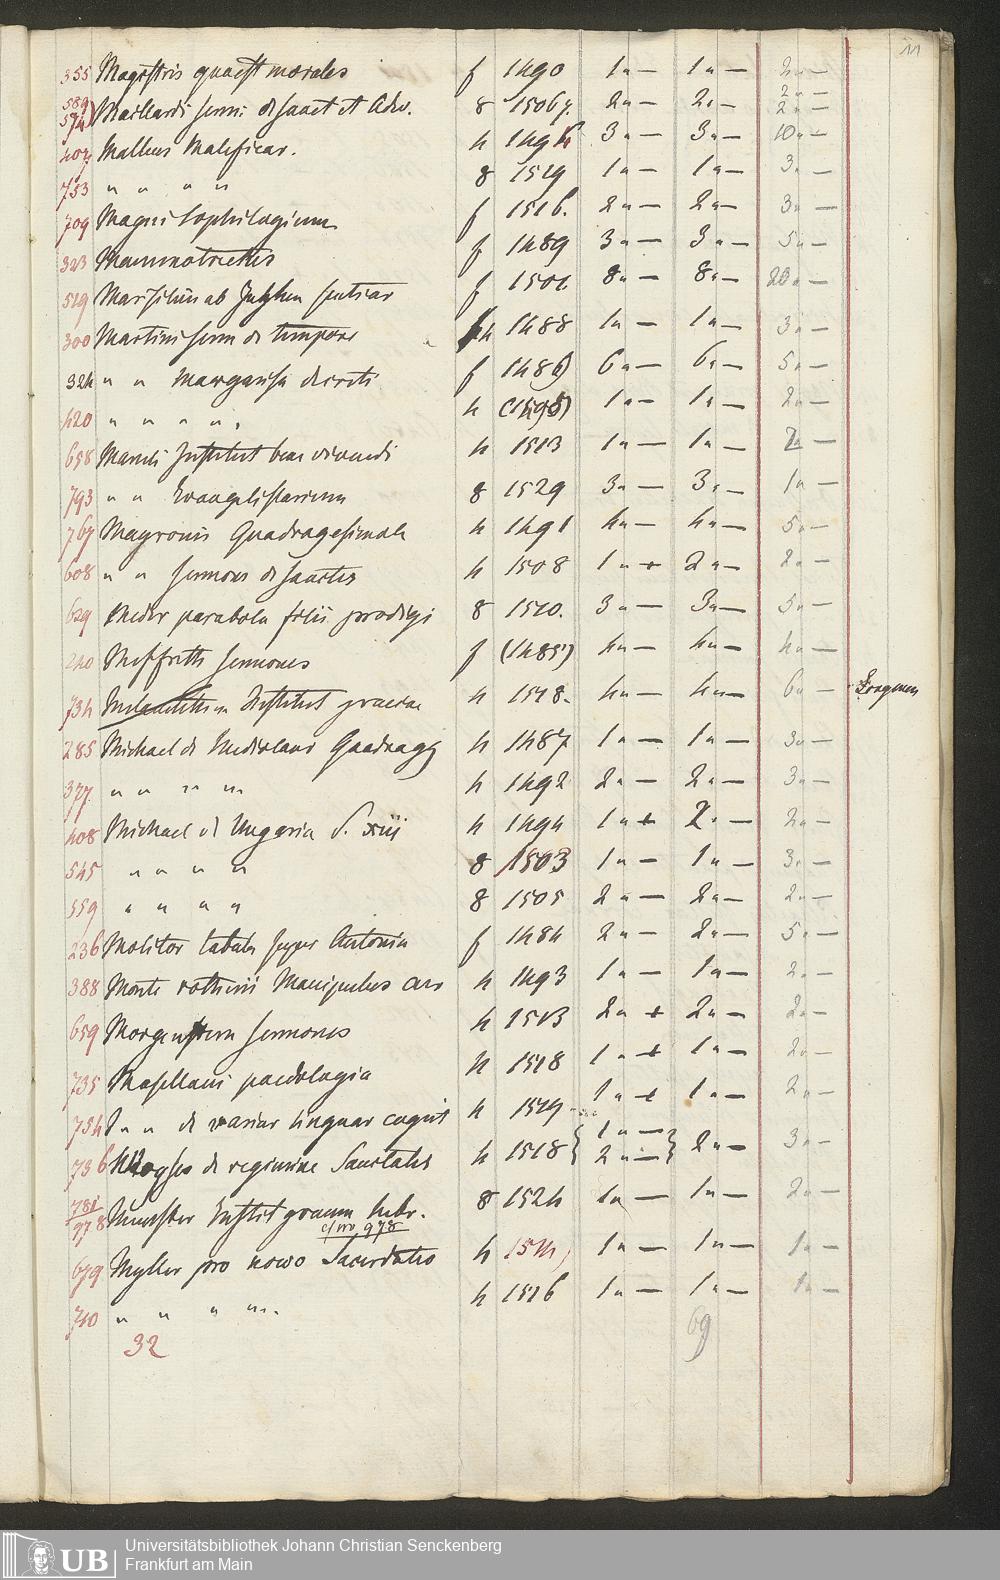 11
355 Magistris quaest morales f 1490 1 " — 1 " — 2 " —
589 574) Maillardi serm: de sanct et Adv. 8 1506/7. 2 " — 2 " — 2 " — 2 " —
407 Malleus Maleficar. 4 1494 3 " — 3 " — 10 " —
753 " " " " 8 1519 1 " — 1 " — 3 " —
709 Magni Sophilogium f 1516. 2 " — 2 " — 3 " —
323 Mammotrectus f 1489 3 " — 3 " — 5 " —
519 Marsilius ab Inghen sentiar f 1501. 8 " — 8 " — 20 " —
300 Martini serm de tempore 4 1488 1 " — 1 " — 3 " —
324 " " Margarita decreti f 1486) 6 " — 6 " — 5 " —
420 " " " " 4 (1495) 1 " — 1 " — 2 " —
658 Maruli Institut bene vivendi 4 1513 1 " — 1 " — 2 " —
793 " " Evangelistarium 8 1529 3 " — 3 " — 1 " —
767 Mayronis Quadragesimale 4 1491 4 " — 4 " — 5 " —
608 " " sermones de sanctis 4 1508 1 " + 2 " — 2 " —
629 Meder parabola filii prodigi 8 1510. 3 " — 3 " — 5 " —
240 Meffreth sermones f (1485) 4 " — 4 " — 4 " —
734 Melanchthon Institut graecae 4 1518. 4 " — 4 " — 6 " — Fragmen
285 Michael de Mediolano Quadragg 4 1487 1 " — 1 " — 3 " —
377. " " " " 4 1492 2 " — 2 " — 3 " —
408 Michael de Ungaria S. xiii 4 1494 1 " + 2 " — 2 " —
545 " " " " 8 1503 1 " — 1 " — 3 " —
559 " " " " 8 1505 2 " — 2 " — 2 " —
236 Molitor tabula super Antonin f 1484 2 " — 2 " — 5 " —
388 Monte rotherii Manipulus cur 4 1493 1 " — 1 " — 2 " —
659 Morgenstern sermones 4 1513 2 " + 2 " — 2 " —
735 Mosellani paedologia 4 1518 1 " + 1 " — 2 " —
754 " " de variar linguar cognit 4 1519 1 " + 1 " — 2 " —
736 Moyses de regimine Sanitatis 4 1518 { 1 " — 2 " — } 2 " — 3 " —
781/978 Munster Instit gramm hebr. 8 1524 1 " — 1 " — 2 " —
cf no 978
679 Myller pro novo Sacerdotio 4 1514, 1 " — 1 " — 1 " —
710 " " " " 4 1516 1 " — 1 " — 1 " —
32 69
UB Universitätsbibliothek Johann Christian Senckenberg
Frankfurt am Main